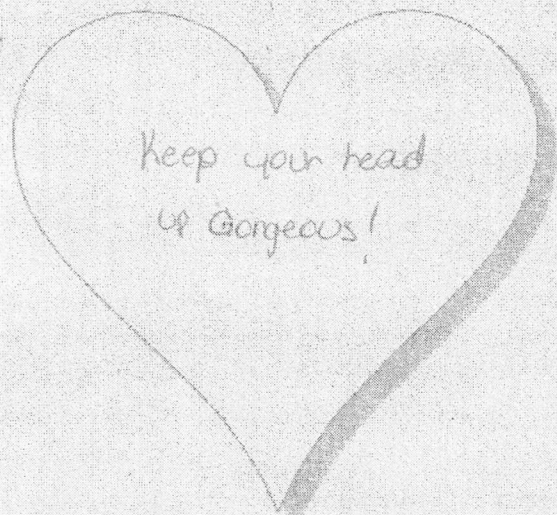 Keep your head
up Gorgeous!